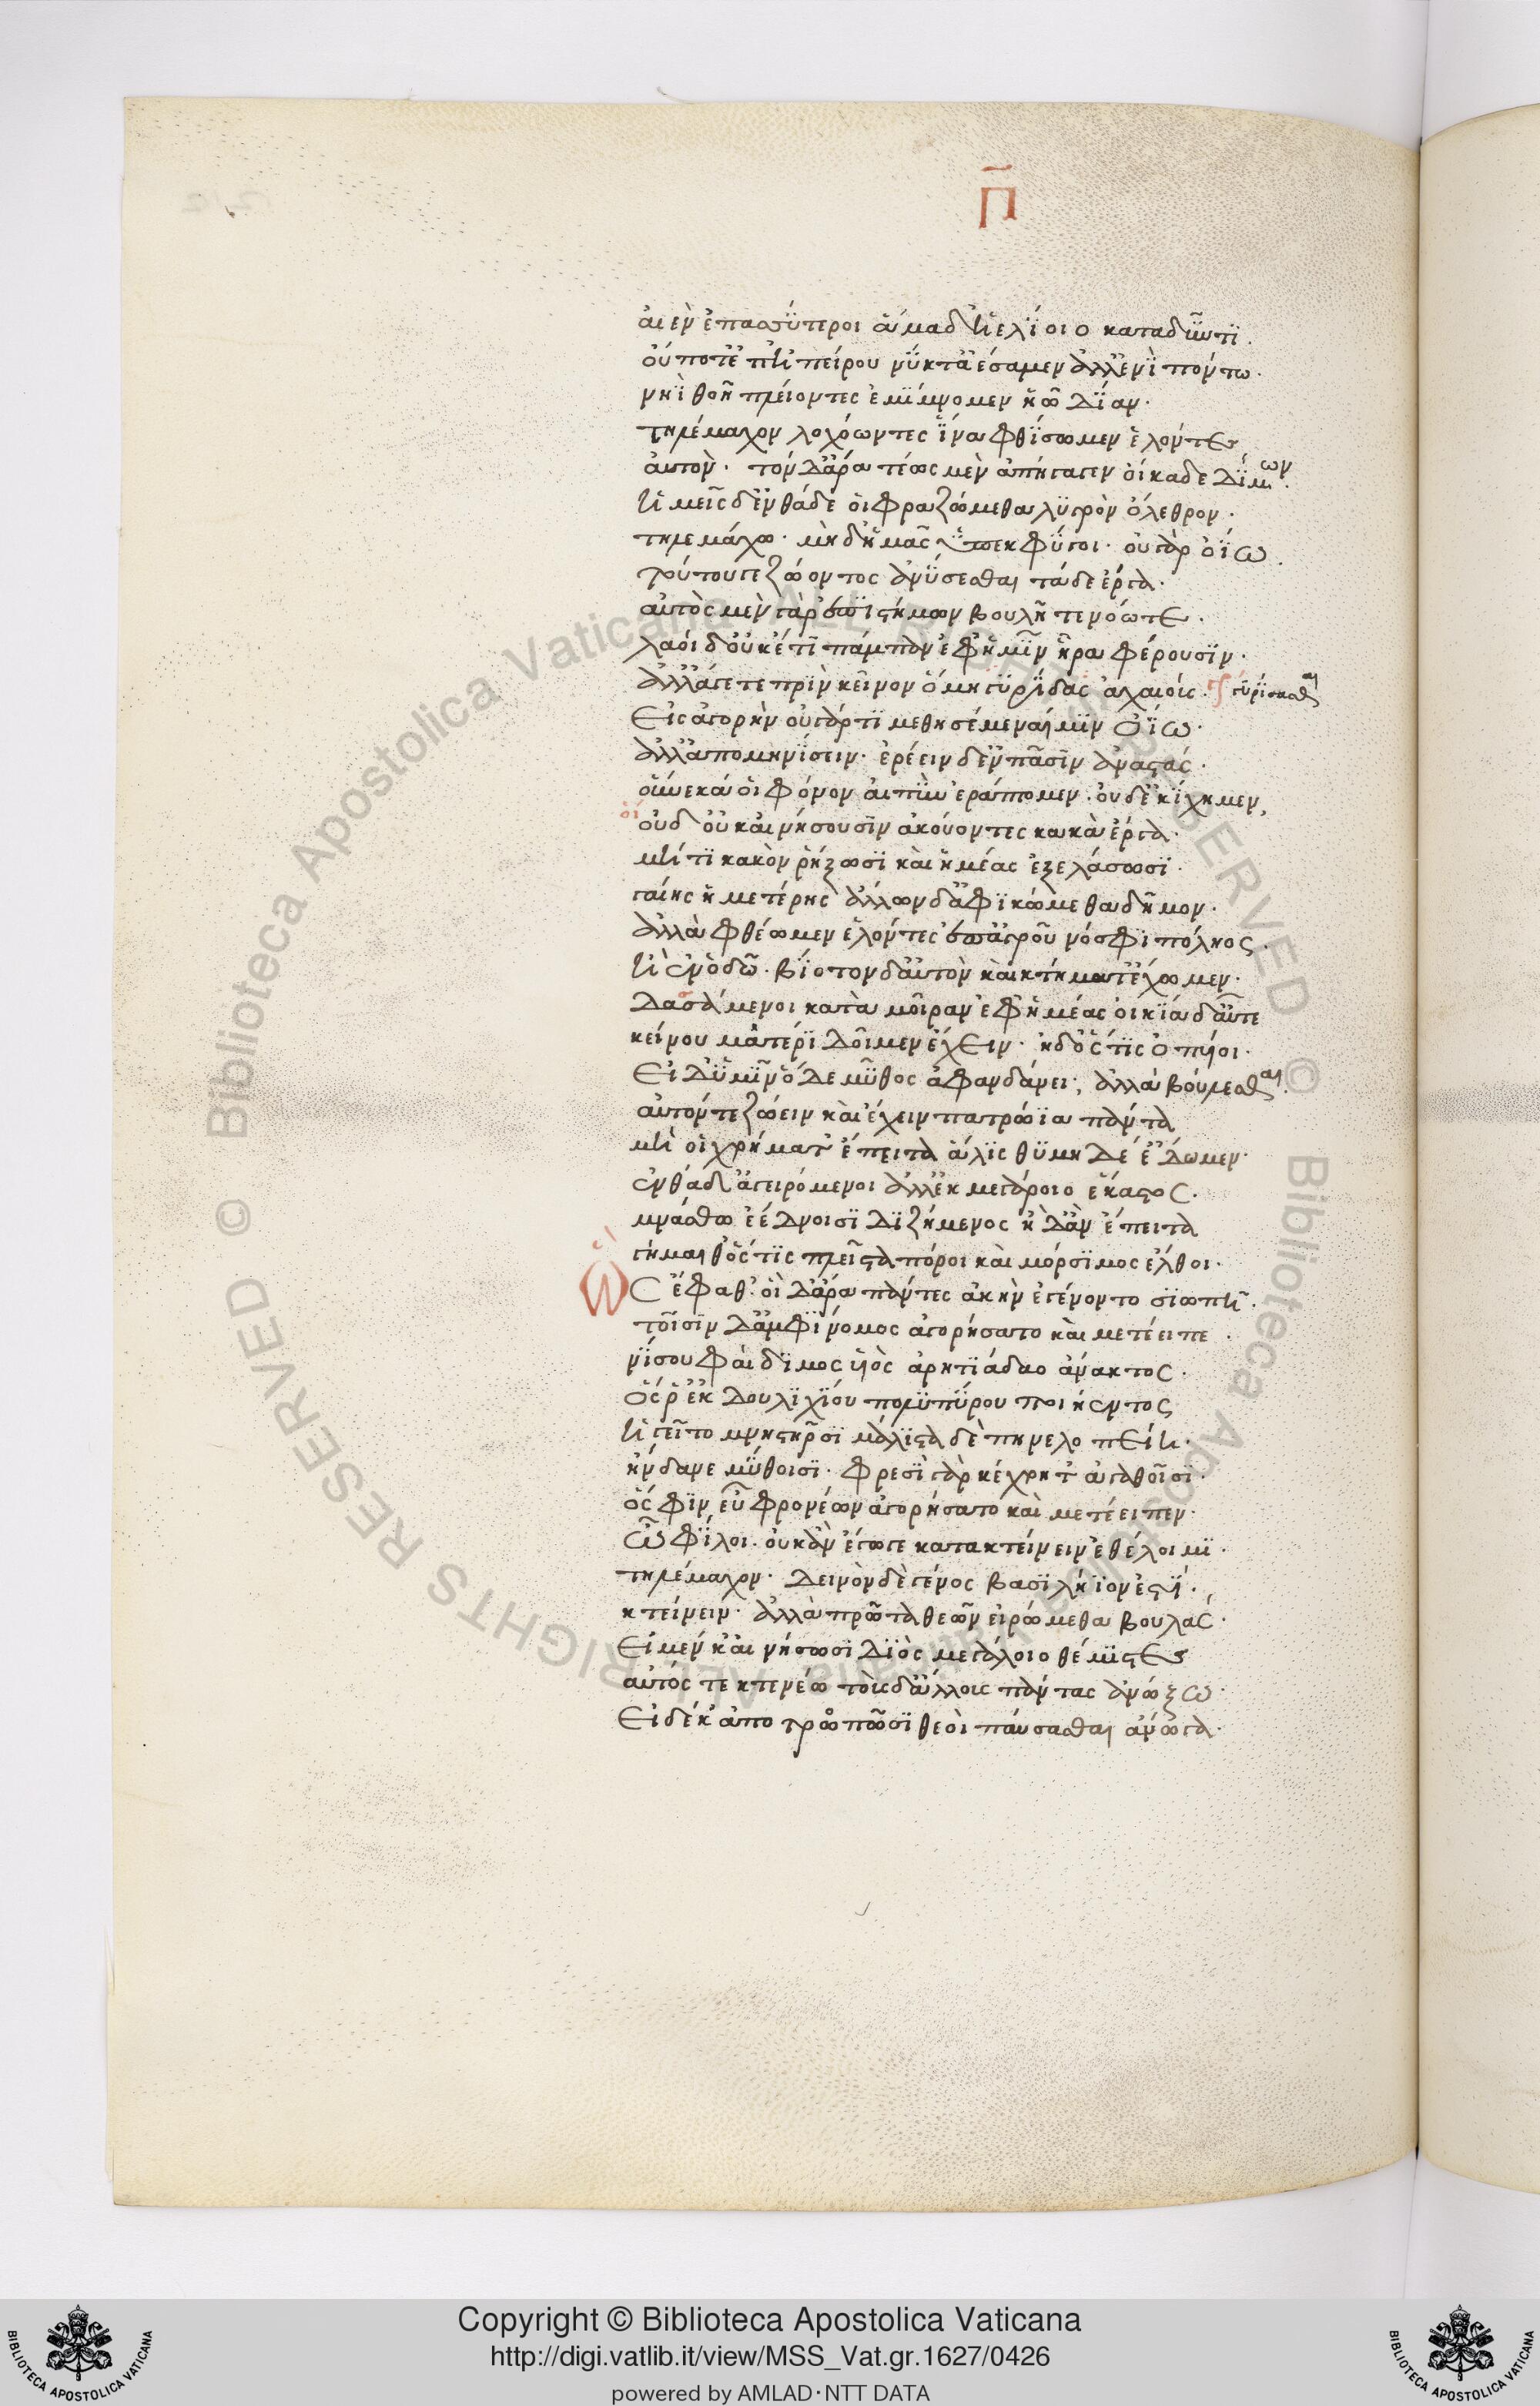 Π
αἰὲν ἐπασσύτεροι ἅμα δ' ἠελίοιο καταδύντι.
οὔποτ' ἐπ' ἠπείρου νύκτ' ἀέσαμεν ἀλλ' ἐνὶ πόντω.
νηὶ θοῆ πλείοντες ἐμίμνομεν ἠῶ δῖαν.
τηλέμαχον λοχόωντες ἵνα φθίσωμεν ἑλόντες
αὐτόν. τὸν δ' ἄρα τέως μὲν ἀπήγαγεν οἴκαδε δαίμων.
ἡμεῖς δ' ἐνθάδε οἱ φραζώμεθα λυγρὸν ὄλεθρον.
τηλεμάχω. μὴ δ' ἡμᾶς ὑπεκφύγοι. οὐ γὰρ ὀΐω.
τούτου γε ζώοντος ἀνύσεσθαι τάδε ἔργα.
αὐτὸς μὲν γὰρ ἐπιστήμων βουλῆ τε νόω τε.
λαοὶ δ' οὐκέτι πάμπαν ἐφ' ἡμῖν ἦρα φέρουσιν.
ἀλλ' ἄγετε πρὶν κεῖνον ὁμηγυρίδας ἀχαιούς. γυρίσασθαι
Εἰς ἀγορὴν οὐ γάρ τι μεθησέμεναί μιν ὀΐω.
ἀλλ' ἀπομηνίσειν. ἐρέειν δ' ἐν πᾶσιν ἀναστάς.
οὕνεκά οἱ φόνον αἰπὺν ἐράπτομεν. οὐδ' ἐκίχημεν,
οἱ
οὐδ' οὐκ αἰνήσουσιν ἀκούοντες κακὰ ἔργα.
μή τι κακὸν ῥέξωσι καὶ ἡμέας ἐξελάσωσι.
γαίης ἡμετέρης ἄλλων δ' ἀφικώμεθα δῆμον.
ἀλλὰ φθέωμεν ἑλόντες ἐπ' ἀγροῦ νόσφι πόληος.
ἢ ἐν ὁδῶ. βίοτον δ' αὐτὸν καὶ κτήματ' ἔχωμεν.
δασσάμενοι κατὰ μοῖραν ἐφ' ἡμέας οἰκία δ' αὖτε
κείνου μητέρι δοῖμεν ἔχειν. ἠδ' ὅστις ὀπυίοι.
Εἰ δ' ὑμῖν ὅδε μῦθος ἀφανδάνει, ἀλλὰ βούλεσθαι.
αὐτόν τε ζώειν καὶ ἔχειν πατρώϊα πάντα
μὴ οἱ χρήματ' ἔπειτα ἅλις θυμηδέ' ἔδωμεν.
ἐνθάδ' ἀγειρόμενοι ἀλλ' ἐκ μεγάροιο ἕκαστος.
μνάσθω ἐέδνοισι διζήμενος ἡ δ' ἂν ἔπειτα
γήμαιθ' ὅστις πλεῖστα πόροι καὶ μόρσιμος ἔλθοι.
Ὣς ἔφαθ'. οἱ δ' ἄρα πάντες ἀκὴν ἐγένοντο σιωπῆ.
τοῖσιν δ' ἀμφίνομος ἀγορήσατο καὶ μετέειπε.
νίσου φαίδιμος υἱὸς ἀρητιάδαο ἄνακτος.
ὅς ῥ' ἐκ δουλιχίου πολυπύρου ποιήεντος
ἡγεῖτο μνηστῆρσι μάλιστα δὲ πηνελοπείη.
ἥνδανε μύθοισι. φρεσὶ γὰρ κέχρητ' ἀγαθοῖσι.
ὅς σφιν εὖ φρονέων ἀγορήσατο καὶ μετέειπεν.
Ὦ φίλοι. οὐκ ἂν ἔγωγε κατακτείνειν ἐθέλοιμι.
τηλέμαχον. δεινὸν δὲ γένος βασιλήϊόν ἐστι.
κτείνειν. ἀλλὰ πρῶτα θεῶν εἰρώμεθα βουλάς.
Εἰ μέν κ' αἰνήσωσι διὸς μεγάλοιο θέμιστες
αὐτός τε κτενέω τούς δ' ἄλλους πάντας ἀνώξω.
Εἰ δέ κ' ἀποτρωπῶσι θεοὶ παύσασθαι ἄνωγα.
Copyright © Biblioteca Apostolica Vaticana
http://digi.vatlib.it/view/MSS_Vat.gr.1627/0426
powered by AMLAD·NTT DATA